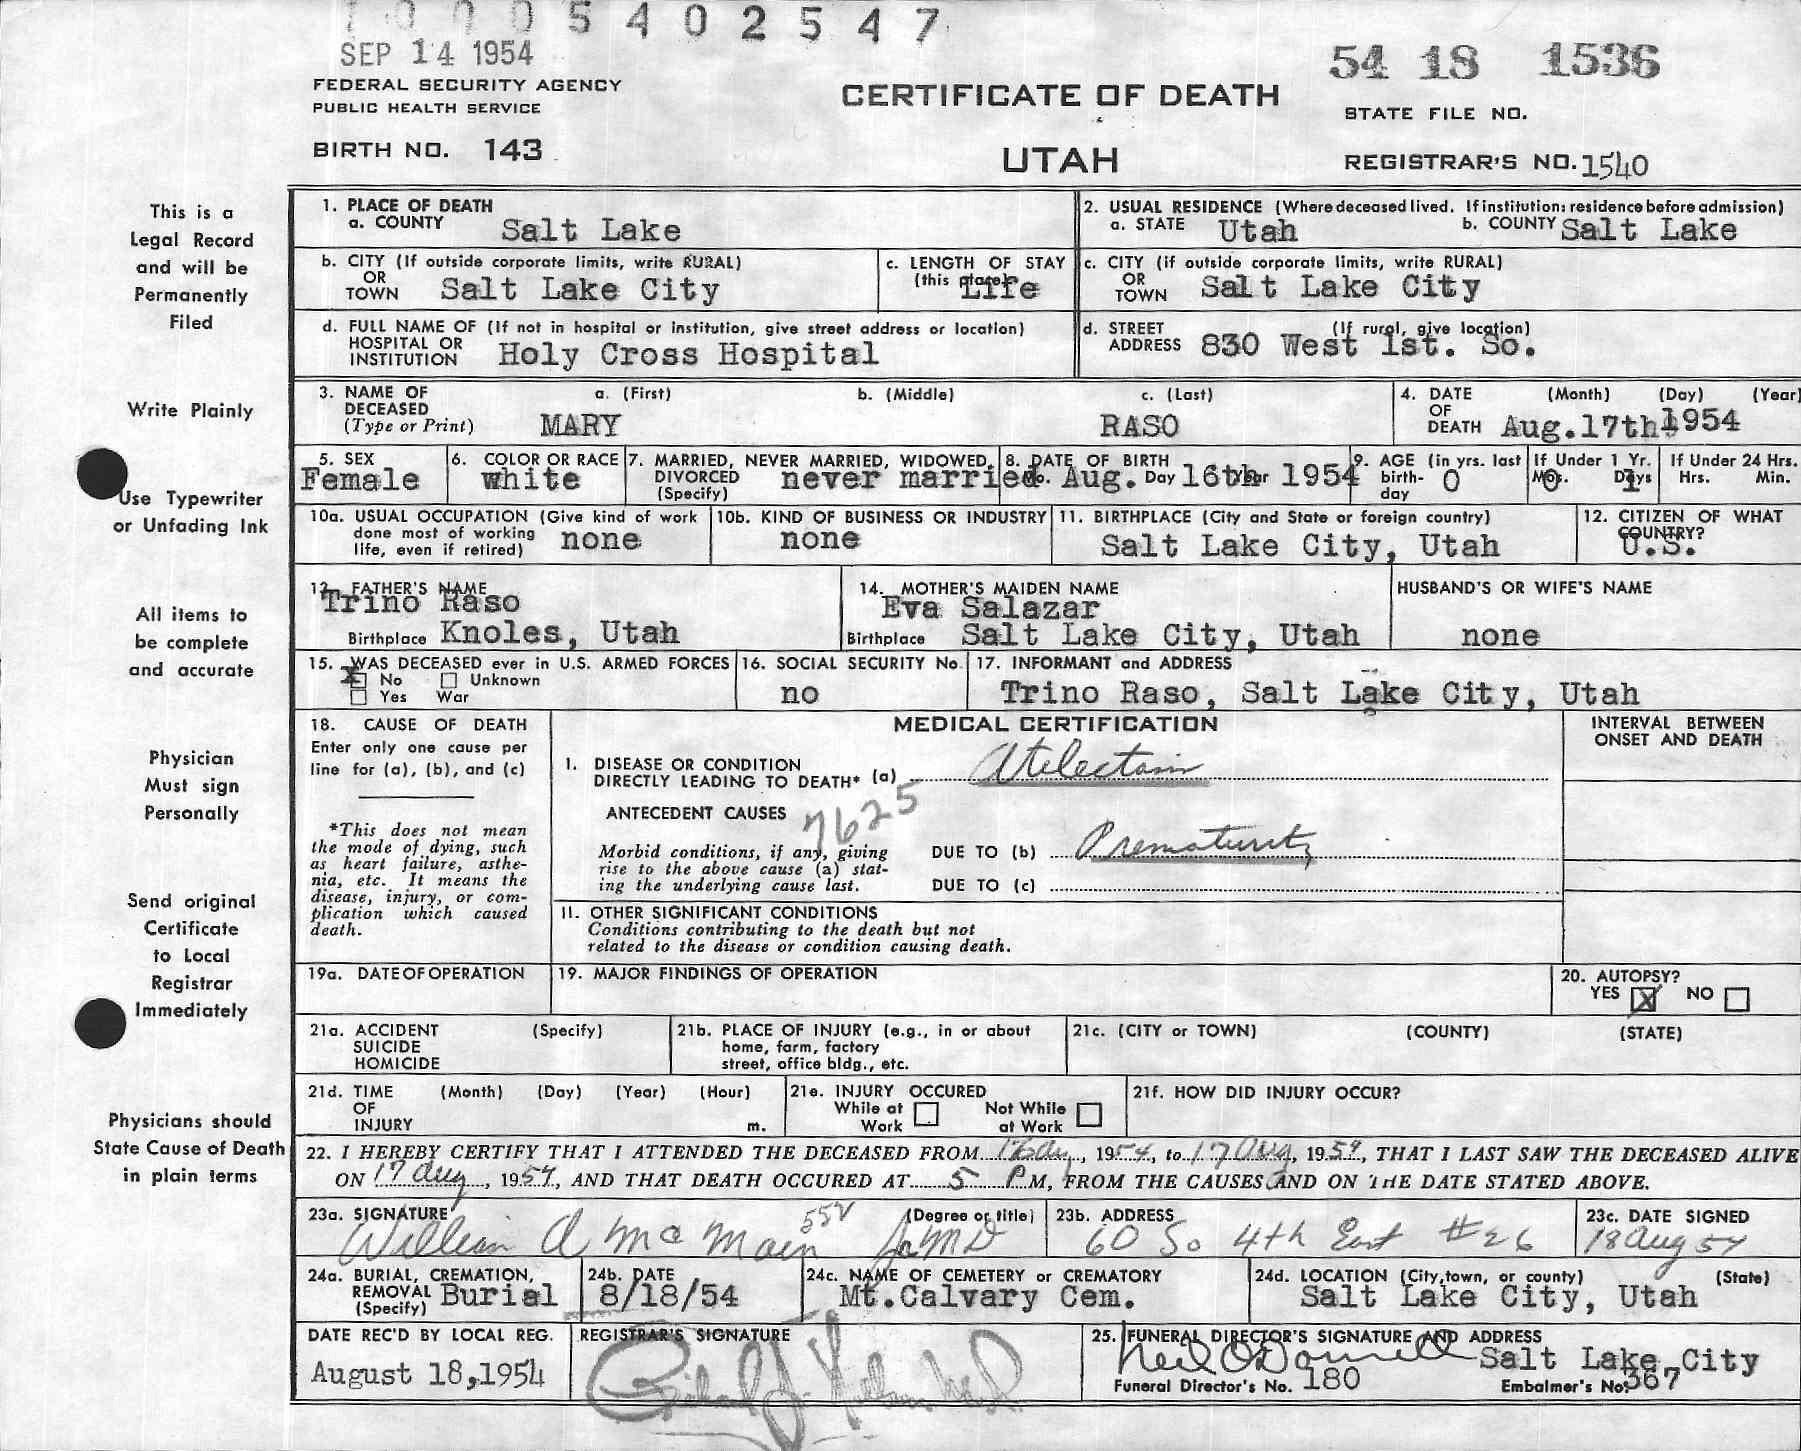 10005402547
SEP 14 1954
54 18 1536
FEDERAL SECURITY AGENCY
PUBLIC HEALTH SERVICE
CERTIFICATE OF DEATH
STATE FILE NO.
BIRTH NO. 143
UTAH
REGISTRAR'S NO. 1540
This is a
Legal Record
and will be
Permanently
Filed
1. PLACE OF DEATH
a. COUNTY Salt Lake
2. USUAL RESIDENCE (Where deceased lived. If institution: residence before admission)
a. STATE Utah b. COUNTY Salt Lake
b. CITY (If outside corporate limits, write RURAL)
OR
TOWN Salt Lake City
c. LENGTH OF STAY
(this place) Life
c. CITY (if outside corporate limits, write RURAL)
OR
TOWN Salt Lake City
d. FULL NAME OF (If not in hospital or institution, give street address or location)
HOSPITAL OR
INSTITUTION Holy Cross Hospital
d. STREET (If rural, give location)
ADDRESS 830 West 1st. So.
Write Plainly
3. NAME OF
DECEASED
(Type or Print)
a. (First) b. (Middle) c. (Last)
MARY RASO
4. DATE (Month) (Day) (Year)
OF
DEATH Aug.17th 1954
Use Typewriter
or Unfading Ink
5. SEX
Female
6. COLOR OR RACE
white
7. MARRIED, NEVER MARRIED, WIDOWED,
DIVORCED
(Specify) never married
8. DATE OF BIRTH
Mo. Aug. Day 16th Year 1954
9. AGE (in yrs. last
birth-
day 0
If Under 1 Yr.
Mos. 0 Days 1
If Under 24 Hrs.
Hrs. Min.
10a. USUAL OCCUPATION (Give kind of work
done most of working
life, even if retired) none
10b. KIND OF BUSINESS OR INDUSTRY
none
11. BIRTHPLACE (City and State or foreign country)
Salt Lake City, Utah
12. CITIZEN OF WHAT
COUNTRY?
U.S.
All items to
be complete
and accurate
13. FATHER'S NAME
Trino Raso
Birthplace Knoles, Utah
14. MOTHER'S MAIDEN NAME
Eva Salazar
Birthplace Salt Lake City, Utah
HUSBAND'S OR WIFE'S NAME
none
15. WAS DECEASED ever in U.S. ARMED FORCES
No Unknown
Yes War
16. SOCIAL SECURITY No.
no
17. INFORMANT and ADDRESS
Trino Raso, Salt Lake City, Utah
Physician
Must sign
Personally
18. CAUSE OF DEATH
Enter only one cause per
line for (a), (b), and (c)
*This does not mean
the mode of dying, such
as heart failure, asthe-
nia, etc. It means the
disease, injury, or com-
plication which caused
death.
MEDICAL CERTIFICATION
INTERVAL BETWEEN
ONSET AND DEATH
I. DISEASE OR CONDITION
DIRECTLY LEADING TO DEATH* (a) Atelectasis
ANTECEDENT CAUSES 7625
Morbid conditions, if any, giving
rise to the above cause (a) stat-
ing the underlying cause last.
DUE TO (b) Prematurity
DUE TO (c)
II. OTHER SIGNIFICANT CONDITIONS
Conditions contributing to the death but not
related to the disease or condition causing death.
Send original
Certificate
to Local
Registrar
Immediately
19a. DATE OF OPERATION
19. MAJOR FINDINGS OF OPERATION
20. AUTOPSY?
YES X NO
21a. ACCIDENT (Specify)
SUICIDE
HOMICIDE
21b. PLACE OF INJURY (e.g., in or about
home, farm, factory
street, office bldg., etc.
21c. (CITY or TOWN) (COUNTY) (STATE)
21d. TIME (Month) (Day) (Year) (Hour)
OF
INJURY m.
21e. INJURY OCCURED
While at Not While
Work at Work
21f. HOW DID INJURY OCCUR?
Physicians should
State Cause of Death
in plain terms
22. I HEREBY CERTIFY THAT I ATTENDED THE DECEASED FROM 16 Aug, 1954, to 17 Aug, 1954, THAT I LAST SAW THE DECEASED ALIVE
ON 17 Aug, 1954, AND THAT DEATH OCCURED AT 5 P M, FROM THE CAUSES AND ON THE DATE STATED ABOVE.
23a. SIGNATURE (Degree or title)
William A McMain Jr MD 552
23b. ADDRESS
60 So 4th East #26
23c. DATE SIGNED
18 Aug 54
24a. BURIAL, CREMATION,
REMOVAL
(Specify) Burial
24b. DATE
8/18/54
24c. NAME OF CEMETERY or CREMATORY
Mt.Calvary Cem.
24d. LOCATION (City, town, or county) (State)
Salt Lake City, Utah
DATE REC'D BY LOCAL REG.
August 18,1954
REGISTRAR'S SIGNATURE
25. FUNERAL DIRECTOR'S SIGNATURE AND ADDRESS
Neil O'Donnell Salt Lake City
Funeral Director's No. 180 Embalmer's No. 367